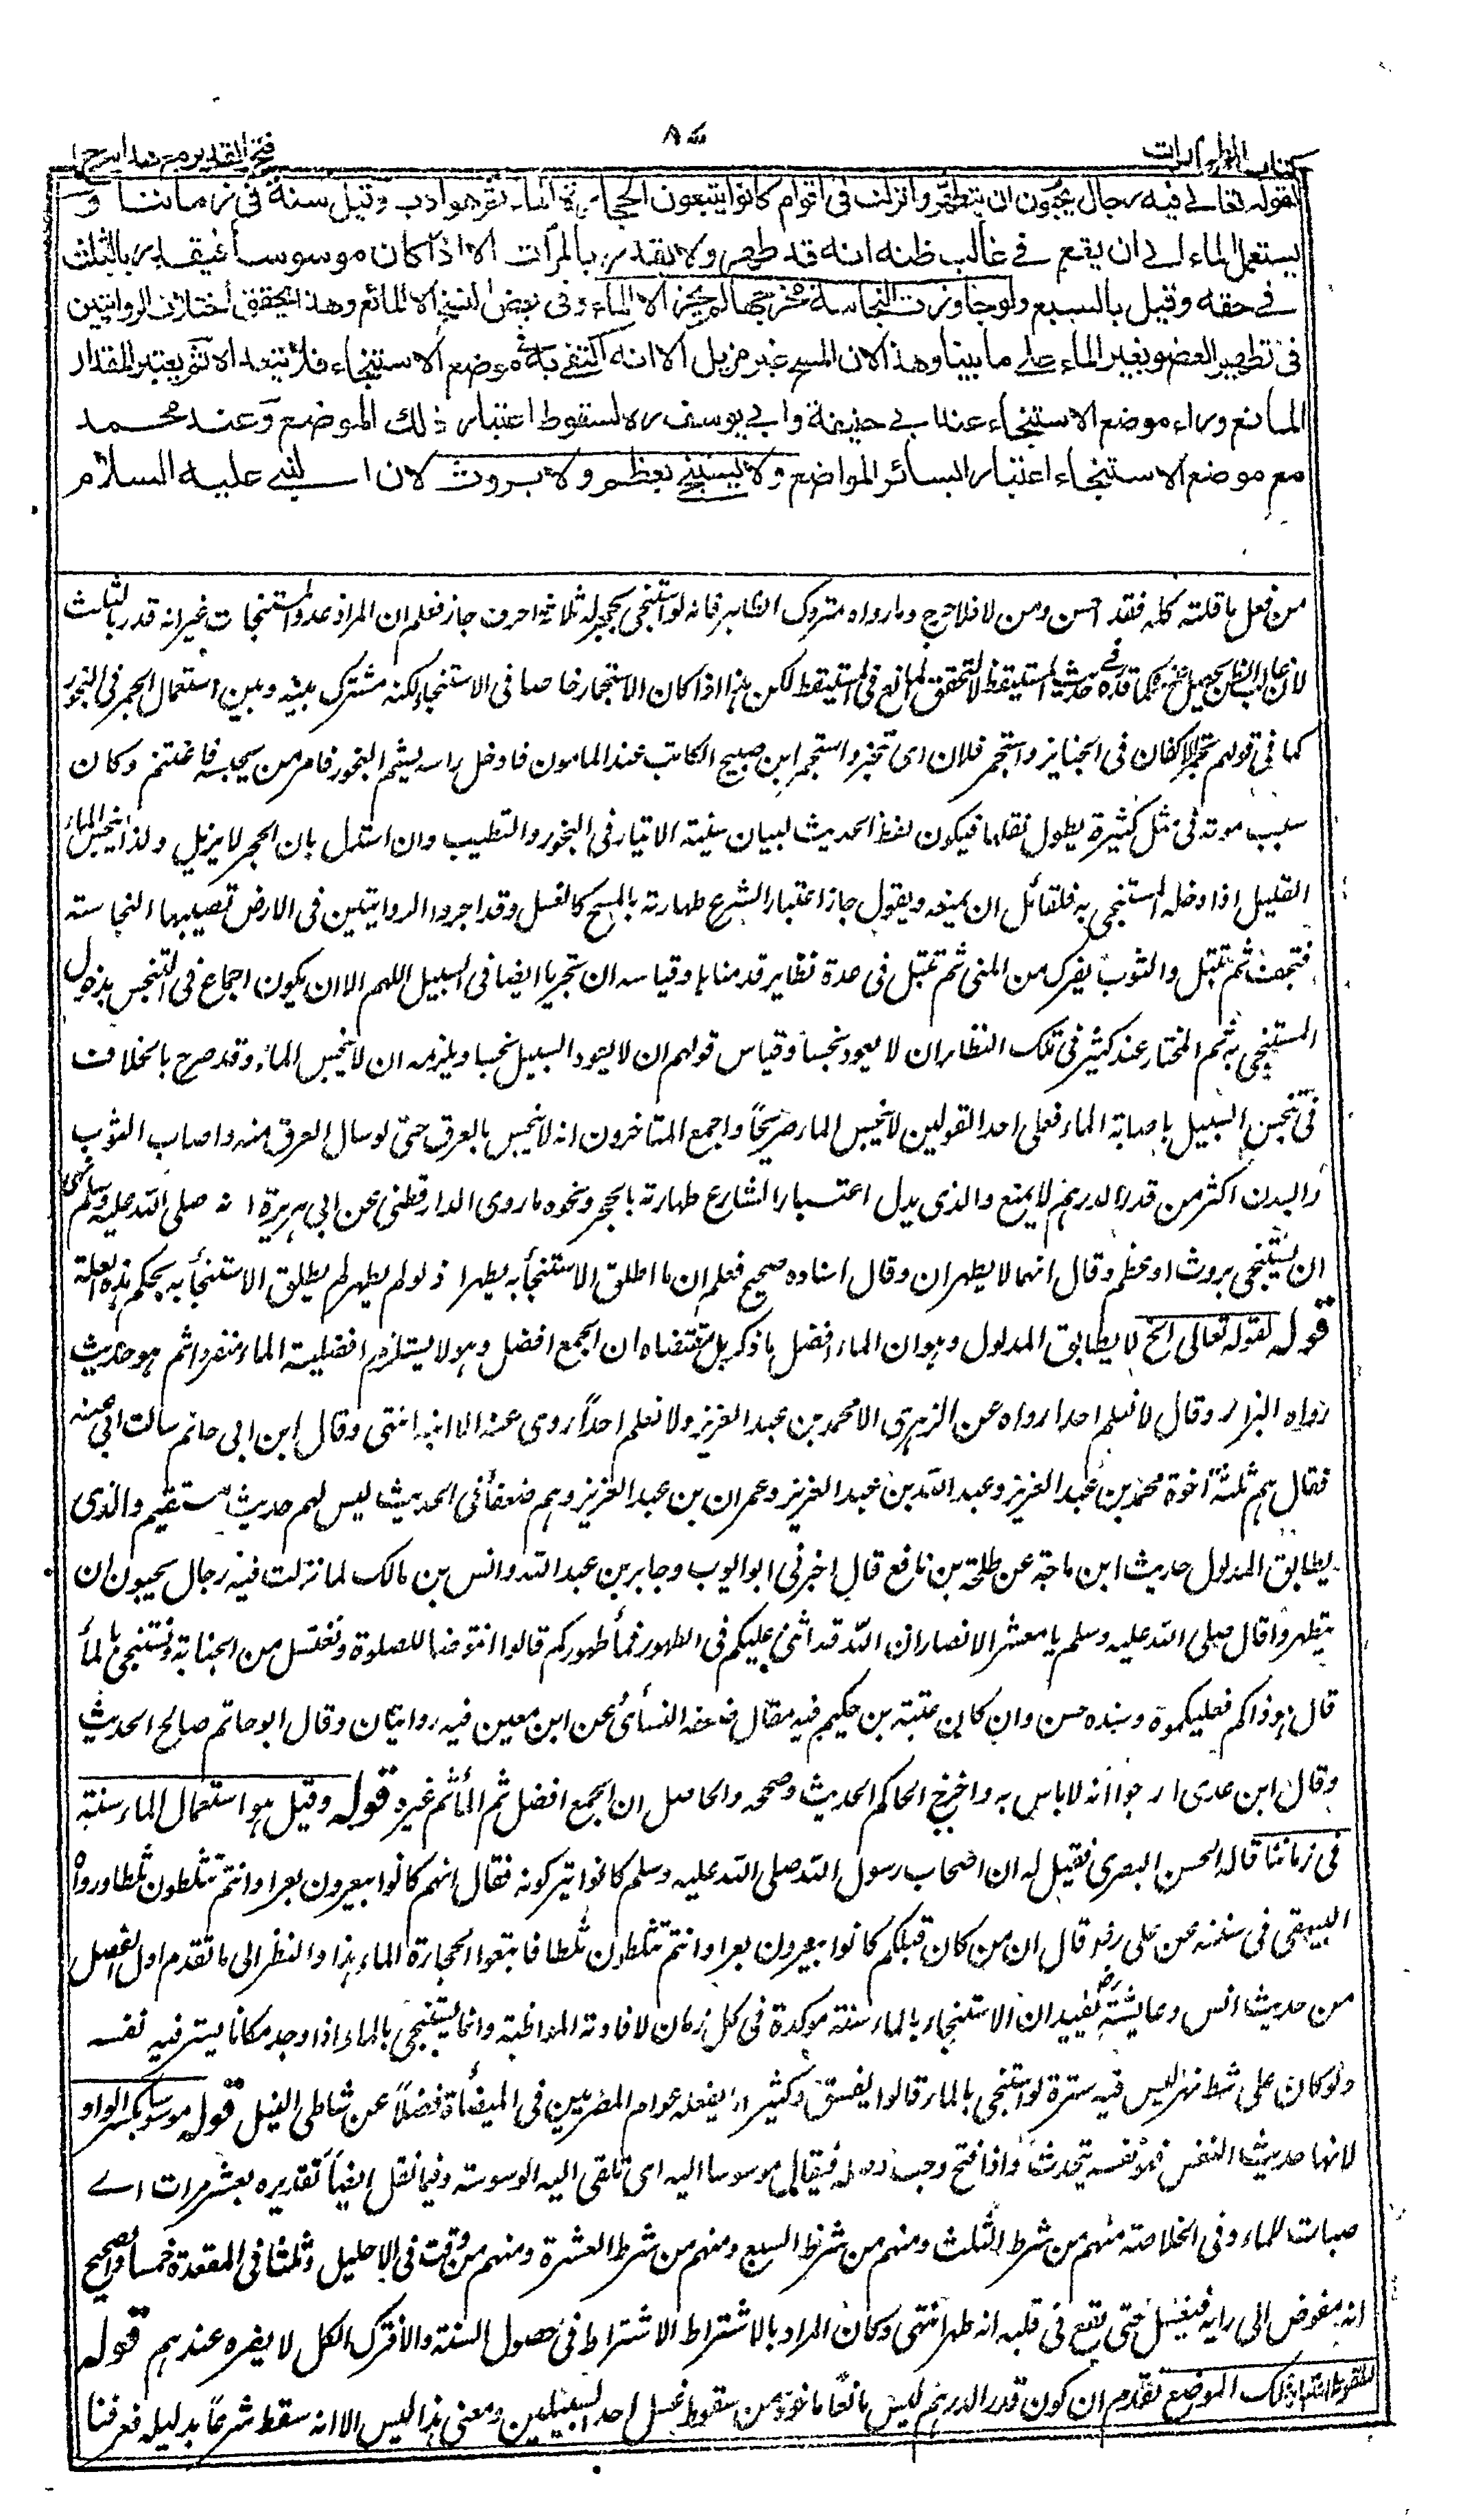 كتاب الطهارات
٨٧
فتح القدير مع هداية ج ١
لقوله تعالى فيه رجال يحبون ان يتطهروا نزلت فى اقوام كانوا يتبعون الحجارة الماء ثم هو ادب وقيل سنة فى زماننا و
يستعمل الماء الى ان يقع فى غالب ظنه انه قد طهر ولا يقدر بالمرات الا اذا كان موسوسا فيقدر بالثلث
فى حقه وقيل بالسبع ولو جاوزت النجاسة مخرجها لم يجز الا الماء وفى بعض النسخ الا المائع وهذا يحقق اختلاف الروايتين
فى تطهير العضو بغير الماء على ما بينا وهذا لان المسح غير مزيل الا انه اكتفى به فى موضع الاستنجاء فلا يتعداه ثم يعتبر المقدار
المانع وراء موضع الاستنجاء عند ابى حنيفة وابى يوسف رح لسقوط اعتبار ذلك الموضع وعند محمد
مع موضع الاستنجاء اعتبارا بسائر المواضع ولا يستنجى بعظم ولا بروث لان النبى عليه السلام
من فعل ما قلته كله فقد احسن ومن لا فلا حرج وما رواه متروك الظاهر فانه لو استنجى بحجر له ثلاثة احرف جاز فعلم ان المراد عدد المستنجات غير انه قدر بالثلث
لان غالب الظن يحصل عنده كما قدره فى حديث المستيقظ لا لتحقق المانع فى المستيقظ لكن هذا اذا كان الاستجمار خاصا فى الاستنجاء لكنه مشترك بينه وبين استعمال الجمر فى البخور
كما فى قولهم تجمر الاكفان فى الجنايز واستجمر فلان اى تبخر واستجمر ابن صبيح الكاتب عند المامون فادخل راسه ليشم البخور فامر من يحبسه فاغتنم وكان
سبب موته فى مثل كثيرة يطول نقلها فيكون لفظ الحديث لبيان سنية الايتار فى البخور والتطييب وان استدل بان الحجر لا يزيل ولذا ينجس الماء
القليل اذا دخله المستنجى به فلقائل ان يمنعه ويقول جاز اعتبار الشرع طهارته بالمسح كالنعل وقد اجروا الروايتين فى الارض تصيبها النجاسة
فتجف ثم تبتل والثوب يفرك من المنى ثم تبتل فى عدة نظاير قدمناها وقياسه ان تجريا ايضا فى السبيل اللهم الا ان يكون اجماع فى التنجس بدخول
المستنجى به ثم المختار عند كثير فى تلك النظاير ان لا يعود نجسا وقياس قولهم ان لا يعود السبيل نجسا ويلزمه ان لا ينجس الماء وقد صرح بالخلاف
فى تنجس السبيل باصابة الماء فعلى احد القولين لا ينجس الماء صريحًا واجمع المتاخرون انه لا ينجس بالعرق حتى لو سال العرق منه واصاب الثوب
والبدن اكثر من قدر الدرهم لا يمنع والذى يدل اعتبار الشارع طهارته بالحجر ونحوه ما روى الدارقطنى عن ابى هريرة انه صلى الله عليه وسلم نهى
ان يستنجى بروث او عظم وقال انهما لا يطهران وقال اسناده صحيح فعلم ان ما اطلق الاستنجأ به يطهر اذ لو لم يطهر لم يطلق الاستنجأ به بحكم هذه العلة
قوله لقوله تعالى الخ لا يطابق المدلول وهو ان الماء افضل بما ذكر بل مقتضاه ان الجمع افضل وهو لا يستلزم افضلية الماء منفردا ثم هو حديث
رواه البزار وقال لا نعلم احدا رواه عن الزهرى الا محمد بن عبد العزيز ولا نعلم احداً روى عنه الا ابنه انتهى وقال ابن ابى حاتم سالت ابى عنه
فقال هم ثلثة اخوة محمد بن عبد العزيز وعبد الله بن عبد العزيز وعمران بن عبد العزيز وهم ضعفأ فى الحديث ليس لهم حديث مستقيم والذى
يطابق المدلول حديث ابن ماجة عن طلحة بن نافع قال اخبرنى ابو ايوب وجابر بن عبد الله وانس بن مالك لما نزلت فيه رجال يحبون ان
يتطهروا قال صلى الله عليه وسلم يا معشر الانصار ان الله قد اثنى عليكم فى الطهور فما طهوركم قالوا نتوضأ للصلوة ونغتسل من الجنابة ونستنجى بالمأ
قال هو ذاكم فعليكموه وسنده حسن وان كان عتبة بن حكيم فيه مقال ضعفه النسائى وعن ابن معين فيه روايتان وقال ابو حاتم صالح الحديث
وقال ابن عدى ارجو انه لا باس به واخرج الحاكم الحديث وصححه والحاصل ان الجمع افضل ثم المأ ثم غيره قوله وقيل هو استعمال الماء سنة
فى زماننا قاله الحسن البصرى فقيل له ان اصحاب رسول الله صلى الله عليه وسلم كانوا يتركونه فقال انهم كانوا يبعرون بعرا وانتم تثلطون ثلطا ورواه
البيهقى فى سننه عن على رض قال ان من كان قبلكم كانوا يبعرون بعرا وانتم تثلطون ثلطا فاتبعوا الحجارة الماء هذا والنظر الى ما تقدم اول الفصل
من حديث انس وعايشة رض يفيد ان الاستنجاء بالماء سنة موكدة فى كل زمان لافادته المواظبة وانما يستنجى بالماء اذا وجد مكانا يستر فيه نفسه
ولو كان على شط نهر ليس فيه سترة لو استنجى بالماء قالوا يفسق وكثيرا ما يفعله عوام المصريين فى الميضأة فضلاً عن شاطى النيل قوله موسوسا بكسر الواو
لانها حديث النفس فهو نفسه يتحدث واذا فتح وجب وصله فيقال موسوسا اليه اى تلقى اليه الوسوسة وفيما نقل ايضاً تقديره بعشر مرات اے
صبات للماء وفى الخلاصة منهم من شرط الثلث ومنهم من شرط السبع ومنهم من شرط العشرة ومنهم من وقت فى الاحليل ثلثا وفى المقعدة خمسا والصحيح
انه مفوض الى رايه فيغسل حتى يقع فى قلبه انه طهر انتهى وكان المراد بالاشتراط الاشتراط فى حصول السنة والا فترك الكل لا يضره عندهم قوله
لسقوط اعتبار ذلك الموضع تقدم ان كون قدر الدرهم ليس مانعًا ماخوذ من سقوط غسل احد السبيلين ومعنى هذا ليس الا انه سقط شرعاً بدليله فعرفنا